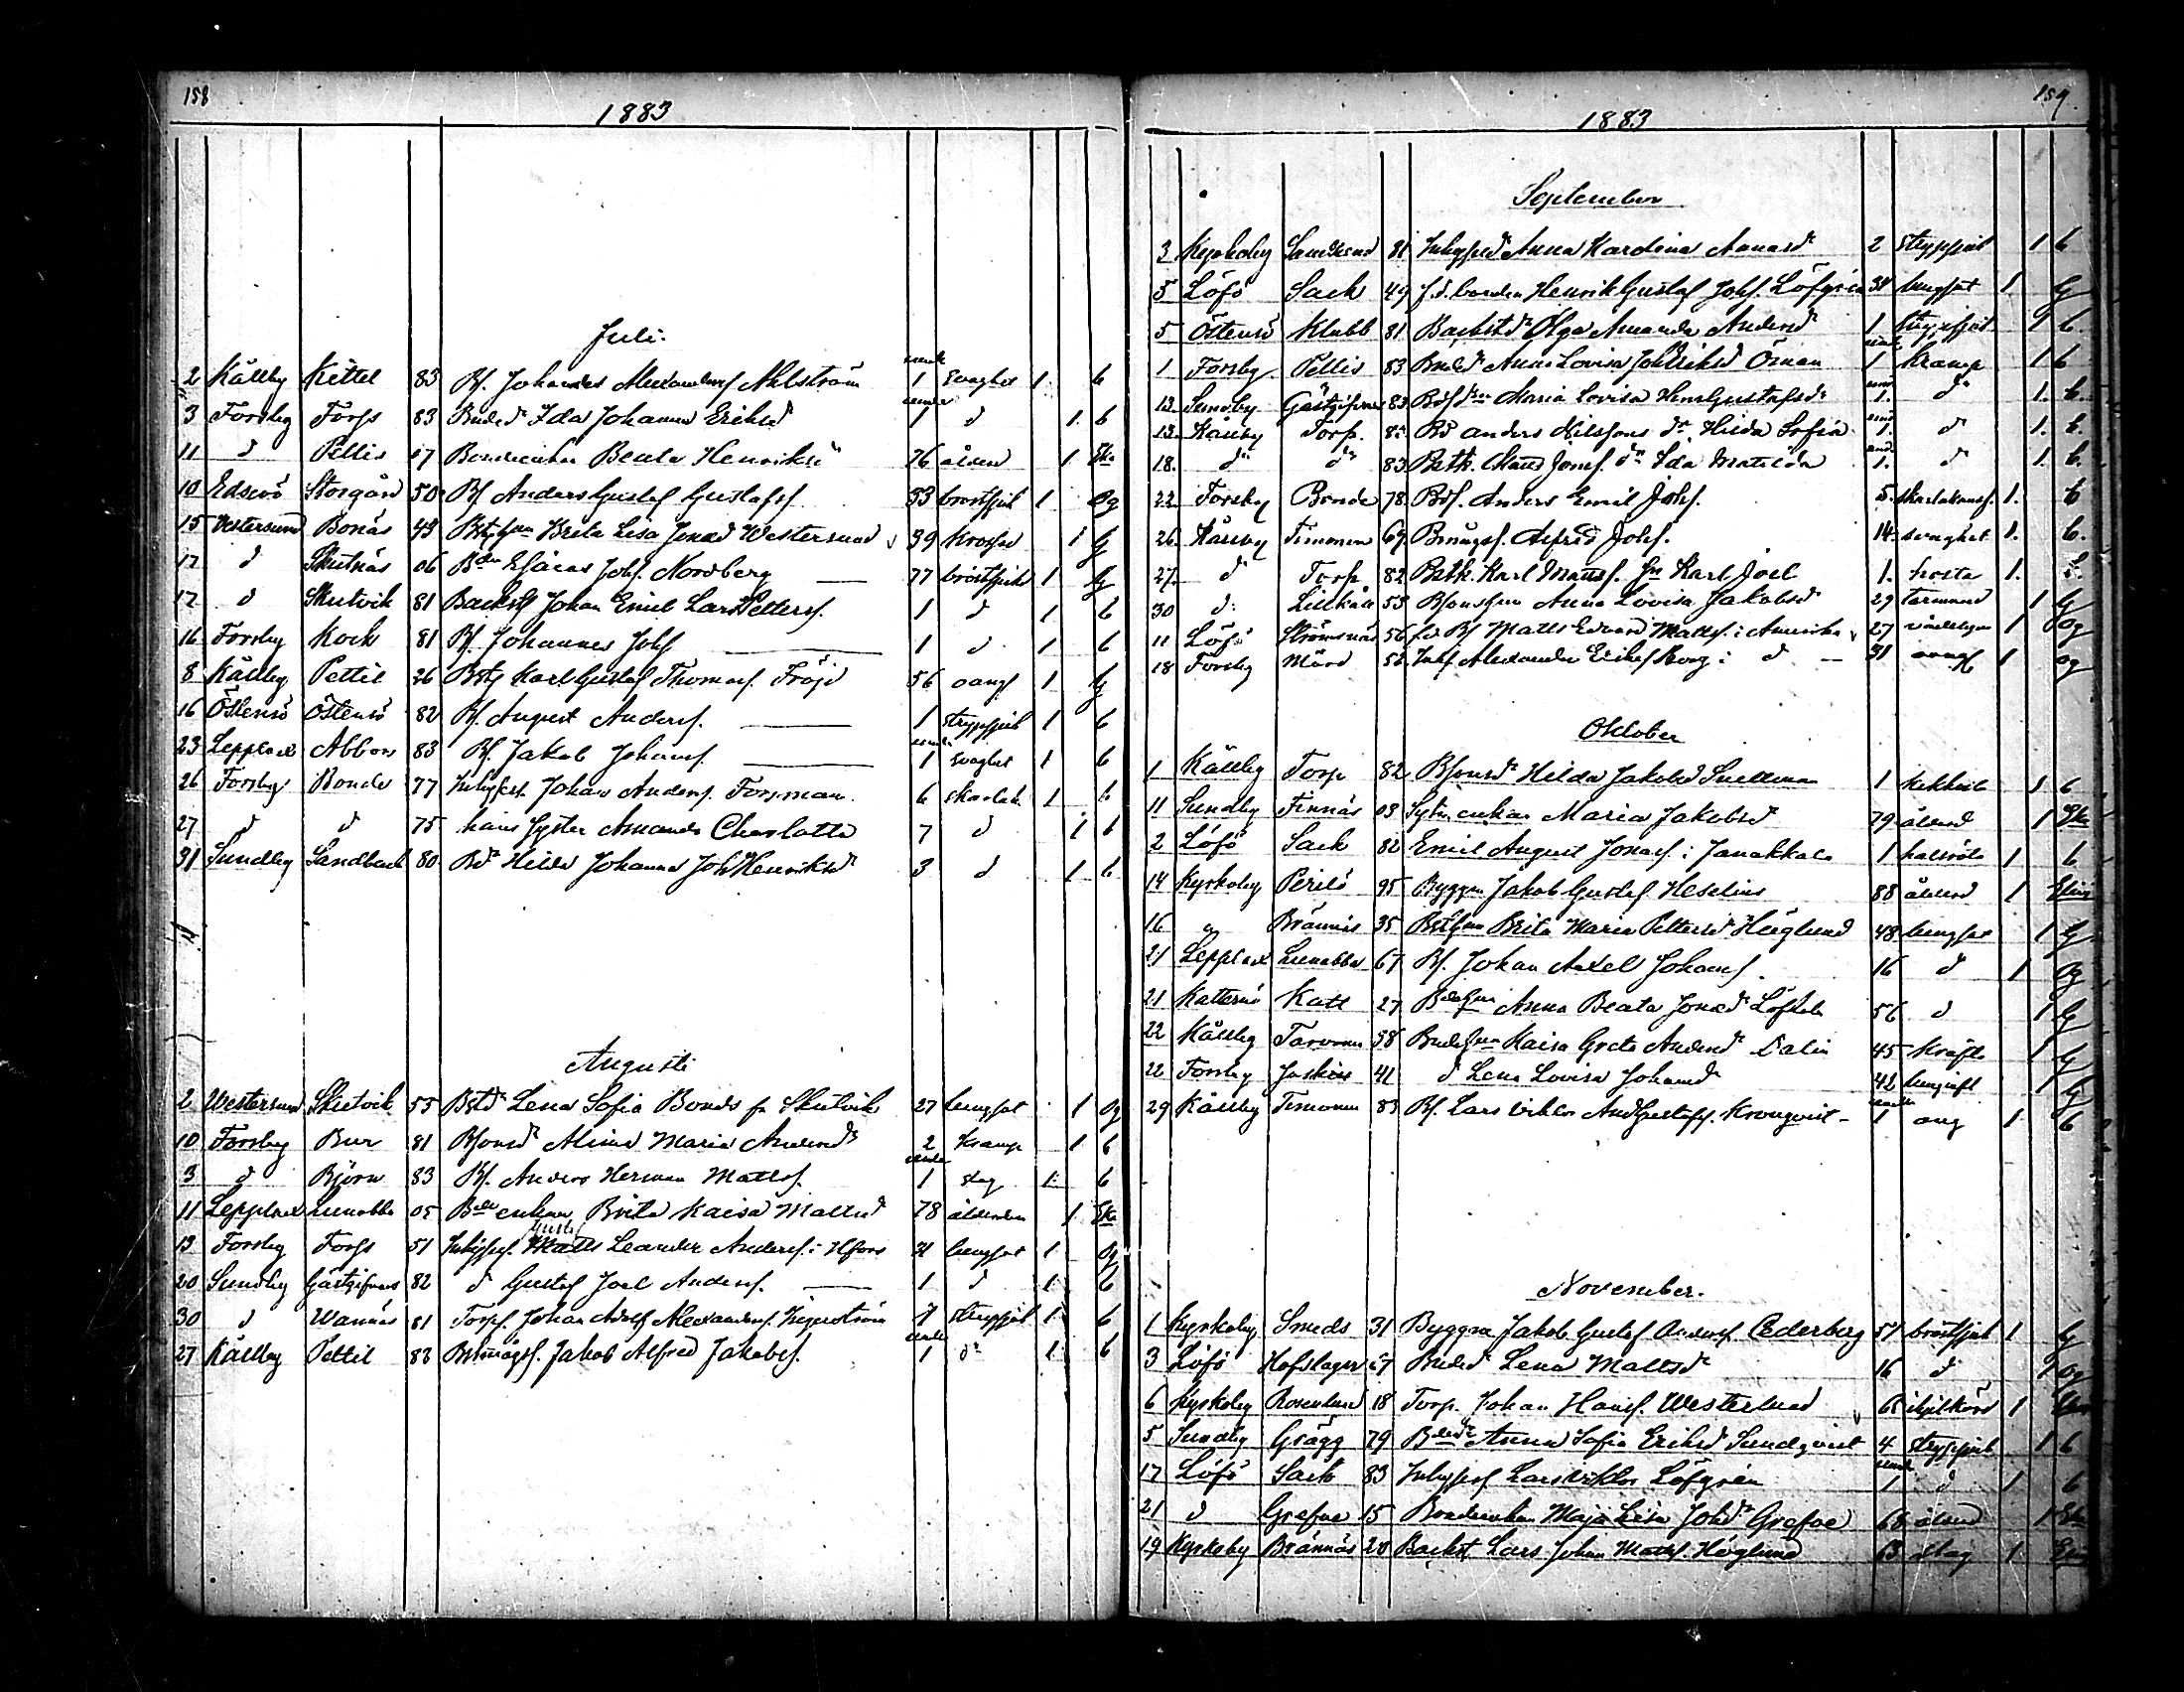 158
1883
Juli.
2 Källby Kittel 83 Bs. Johannes Alexanders. Ahlström 1 svaghet 1 b
3 Forsby Forss 83 Ida Johanna Eriksd 1 d 1. b
11 d Pellis 07 Bondeenkan Beata Henriksd 76 ålderd 1 Eka
10 Edsevö Storgård 50 Bs Anders Gustaf Gustafss. 33 bröstsjuk 1 Og
15 Vestersund Bonäs 43 Brita Lisa Jonæd Westersund 39 1 G
17 d Skutnäs 06 Esaias Johs. Nordberg 77 bröstsjuk 1 G
17 d Skutvik 81 Backst Johan Emil Lars Petterss. 1 d 1 b
16 Forsby Kock 81 Bs. Johannes Johs 1 d 1 b
8 Källby Pettil 26 Karl Gustaf Thomass. Fröjd 56 1 G
16 Östensö Östensö 82 Bs. August Anderss. 1 strypsjuk 1 b
23 Lepplax Abbors 83 Bs. Jakob Johanss. 1 svaghet 1 b
26 Forsby Bonde 77 Johan Anderss. Forsman 6 skarlak. 1 b
27 d d 75 hans syster Amanda Charlotta 7 d 1 b
31 Sundby Sandback 80 Bd Hilda Johanna Joh Henriksd 3 d 1 b
Augusti
2 Westersund Skutvik 55 Lena Sofia Bonds fr Skutvik 27 lungsot 1 Og
10 Forsby Bur 81 Alina Maria Andersd 2 kramp 1 b
3 d Björn 83 Bs. Anders Herman Mattss. 1 slag 1 b
11 Lepplax Lunabba 05 enkan Brita Kaisa Mattsd 78 ålderdom 1 Eka
Gustaf
13 Forsby Forss 51 Matts Leander Anderss. i Hfors 31 lungsot 1 Og
20 Sundby Gästgifvars 82 d Gustaf Joel Anderss. 1 d 1 b
30 d Wannäs 81 Torps. Johan Adolf Alexanders. 1 strypsjuk 1 b
27 Källby Pettil 83 Jakob Alfred Jakobss. 1 d 1 b
159
1883
September
3 Kyrkoby Sandsund 81 Anna Karolina Annasd 2 strypsjuk 1 b
5 Löfö Sack 49 f.d. bonden Henrik Gustaf Johs. Löfgren 34 lungsot 1 G
5 Östensö Klubb 81 Olga Amanda Andersd 1 strypsjuk 1 b
1 Forsby Pellis 83 Anna Lovisa Joh Eriksd Öman 1 kramp 1 b
13 Sundby Gästgifvars 83 Maria Lovisa Hen Gustafsd 1. d 1. b.
13. Källby Torp. 83 anders Nilssons dr Hilda Sofia 1. d 1. b.
18. d d 83 Matts Jönss. dr Ida Matilda 1. d 1. b.
22 Forsby Bonde 78 Anders Emil Johs. 5. skarlakansf. 1. b
26. Källby Timonen 69 Alfred Johs. 14. svaghet 1. b.
27. d Torp 82 Karl Mattss. Sn Karl Joel 1. hosta 1. b.
30 d. Lillkåll 53 Anna Lovisa Jakobsd 29 1 G
11 Löfö Strömsnäs 56 Matts Edvard Mattss. i Amerika 27 1 og
18 Forsby Mård 52 Alexander Erikss Borg i d 31 1 og
Oktober
1 Källby Torp 82 Hilda Jakobsd Snellman 1 1 b
11 Sundby Finnäs 03 enkan Maria Jakobsd 79 ålderd 1 Eka
2 Löfö Sack 82 Emil August Jonass. i Janakkala 1 halsröta 1 b
14 Kyrkoby Perilö 95 Byggm Jakob Gustaf Heselius 88 ålderd 1
16 Brännäs 35 Brita Maria Pettersd Höglund 48 lungsot 1 G
21 Lepplax Lunabba 67 Bs. Johan Axel Johanss. 16 d 1 Og
21 Katternö Katt 27 Anna Beata Jonæd 56 d 1 G
22 Källby Tarvonen 38 Kaisa Greta Andersd Dalin 45 kräfta 1 G
22 Forsby Joskas 41 d Lena Lovisa Johansd 42 1 G
29 Källby Timonen 83 Bs. Lars Viktor And Gustafss. Kronqvist 1 1 b
November.
1 Kyrkoby Smeds 31 Byggm Jakob Gustaf Anderss. Cederberg 51 bröstsjuk 1 G
3 Löfö Hofslagar 67 Lena Mattsd 16 d 1 og
6 Kyrkoby Rosenlund 18 Torp. Johan Hanss. Westerlund 65 ihjelkörd 1
5 Sundby Grägg 79 Anna Sofia Eriksd Sundqvist 4 strypsjuk 1 b
17 Löfö Sack 83 Lars Viktor Löfgrén 1 d 1 b
21 d Grefve 15 Bondeenkan Maja Lisa Johsd Grefve 68 ålderd 1 Eka
19 Kyrkoby Brännäs 20 Backst Lars Johan Mattss. Höglund 63 slag 1